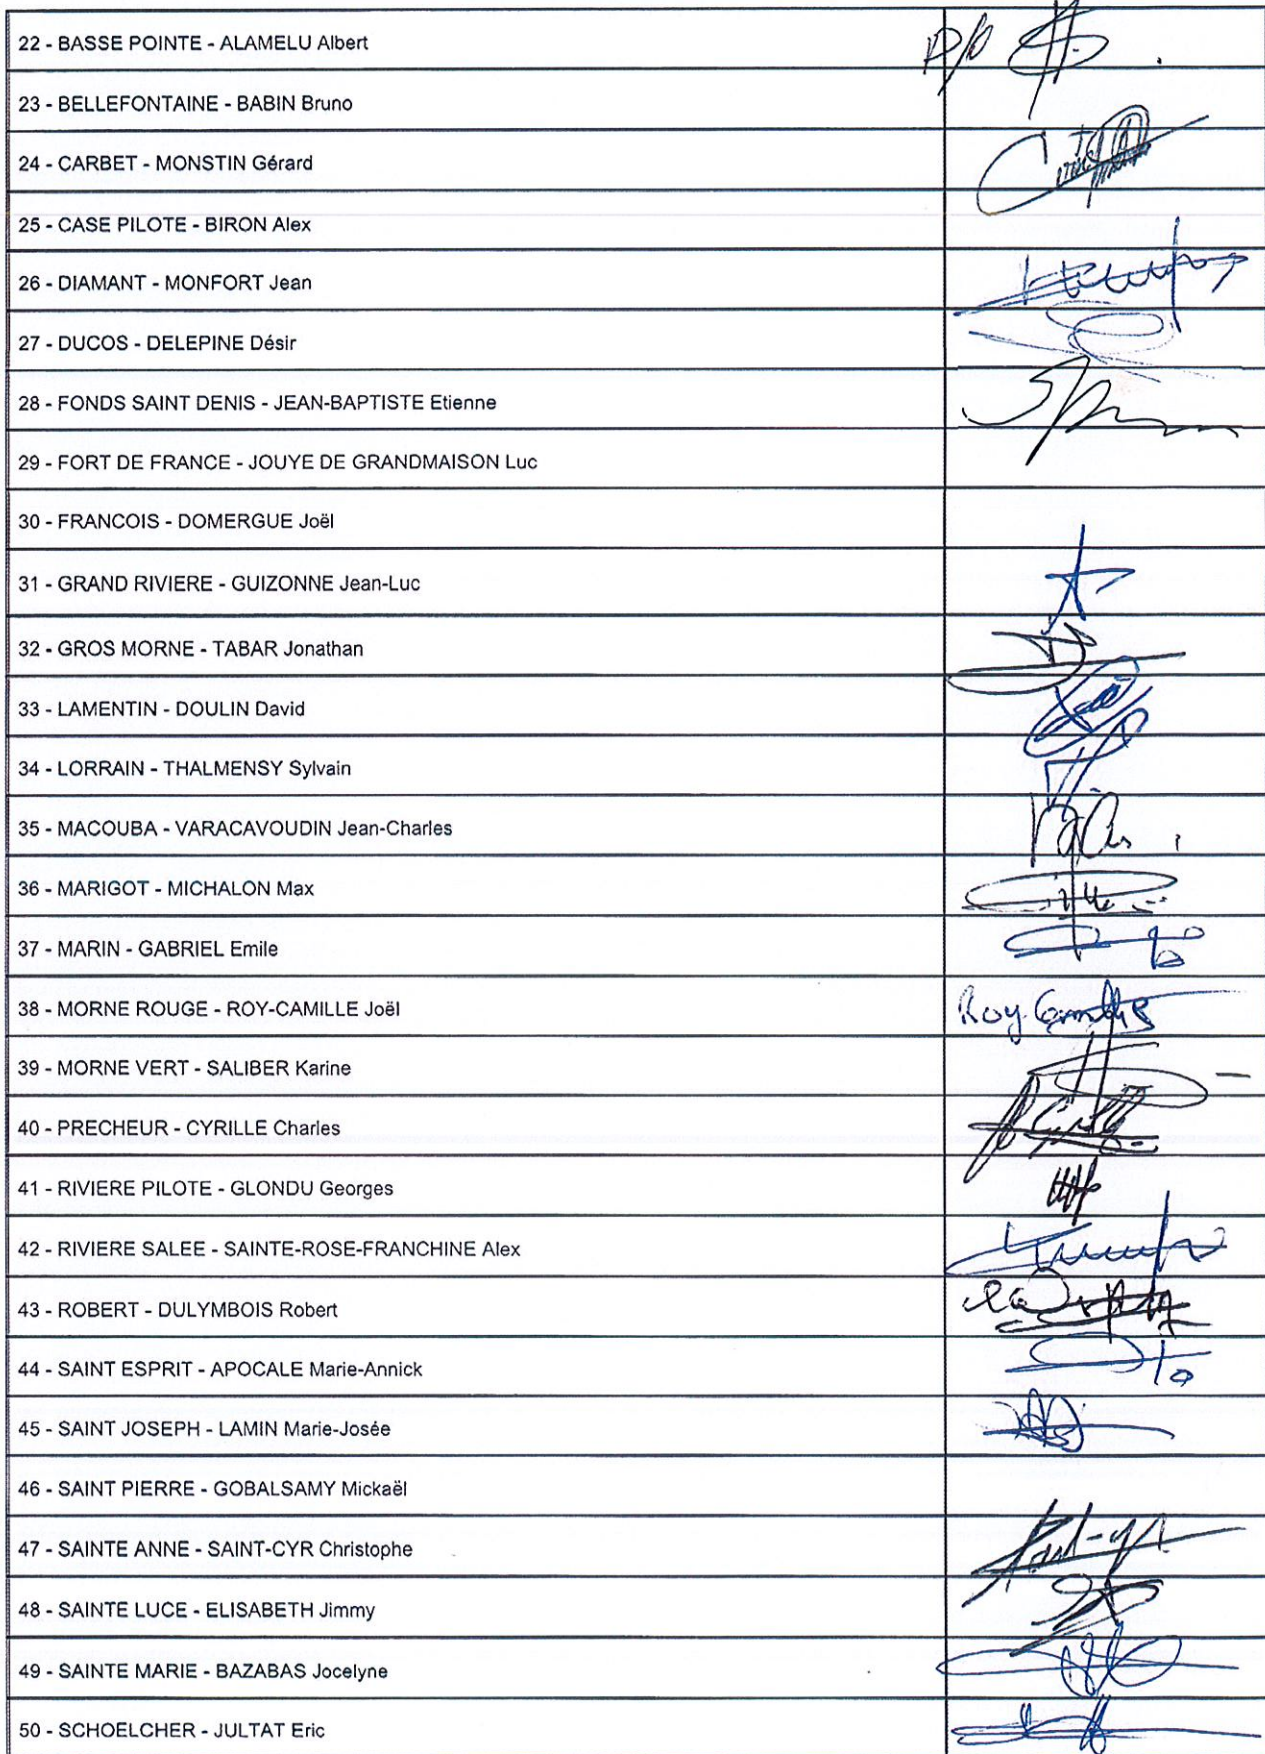 22 - BASSE POINTE - ALAMELU Albert P/o
23 - BELLEFONTAINE - BABIN Bruno
24 - CARBET - MONSTIN Gérard
25 - CASE PILOTE - BIRON Alex
26 - DIAMANT - MONFORT Jean
27 - DUCOS - DELEPINE Désir
28 - FONDS SAINT DENIS - JEAN-BAPTISTE Etienne
29 - FORT DE FRANCE - JOUYE DE GRANDMAISON Luc
30 - FRANCOIS - DOMERGUE Joël
31 - GRAND RIVIERE - GUIZONNE Jean-Luc
32 - GROS MORNE - TABAR Jonathan
33 - LAMENTIN - DOULIN David
34 - LORRAIN - THALMENSY Sylvain
35 - MACOUBA - VARACAVOUDIN Jean-Charles
36 - MARIGOT - MICHALON Max
37 - MARIN - GABRIEL Emile
38 - MORNE ROUGE - ROY-CAMILLE Joël Roy
39 - MORNE VERT - SALIBER Karine
40 - PRECHEUR - CYRILLE Charles
41 - RIVIERE PILOTE - GLONDU Georges
42 - RIVIERE SALEE - SAINTE-ROSE-FRANCHINE Alex
43 - ROBERT - DULYMBOIS Robert
44 - SAINT ESPRIT - APOCALE Marie-Annick
45 - SAINT JOSEPH - LAMIN Marie-Josée
46 - SAINT PIERRE - GOBALSAMY Mickaël
47 - SAINTE ANNE - SAINT-CYR Christophe
48 - SAINTE LUCE - ELISABETH Jimmy
49 - SAINTE MARIE - BAZABAS Jocelyne
50 - SCHOELCHER - JULTAT Eric